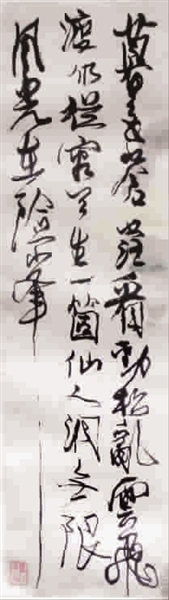 暮色蒼茫看勁松亂雲飛
渡仍從容天生一箇仙人洞無限
風光在險峯